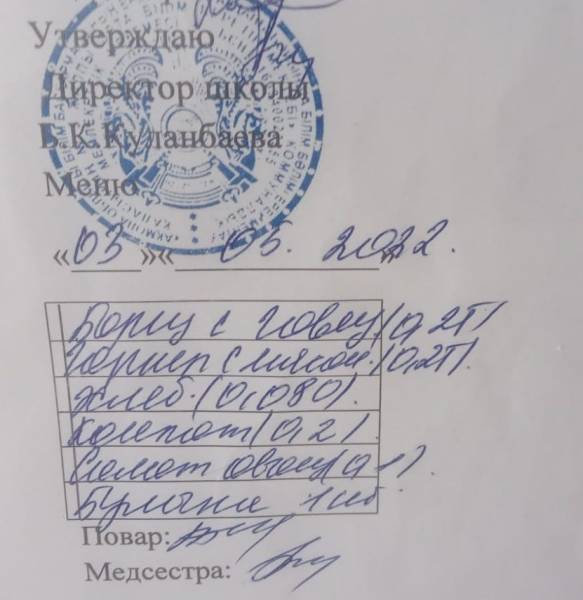 Утверждаю
Директор школы
Б.К.Куланбаева
Меню
«03»« 05. 2022.
Борщ с говяд (0,2г)
Гарнир с мясом. (0,2г).
Хлеб. (0,080).
Компот (0,2).
Салат овощ (0,1).
Булочка 1 шт.
Повар:
Медсестра: